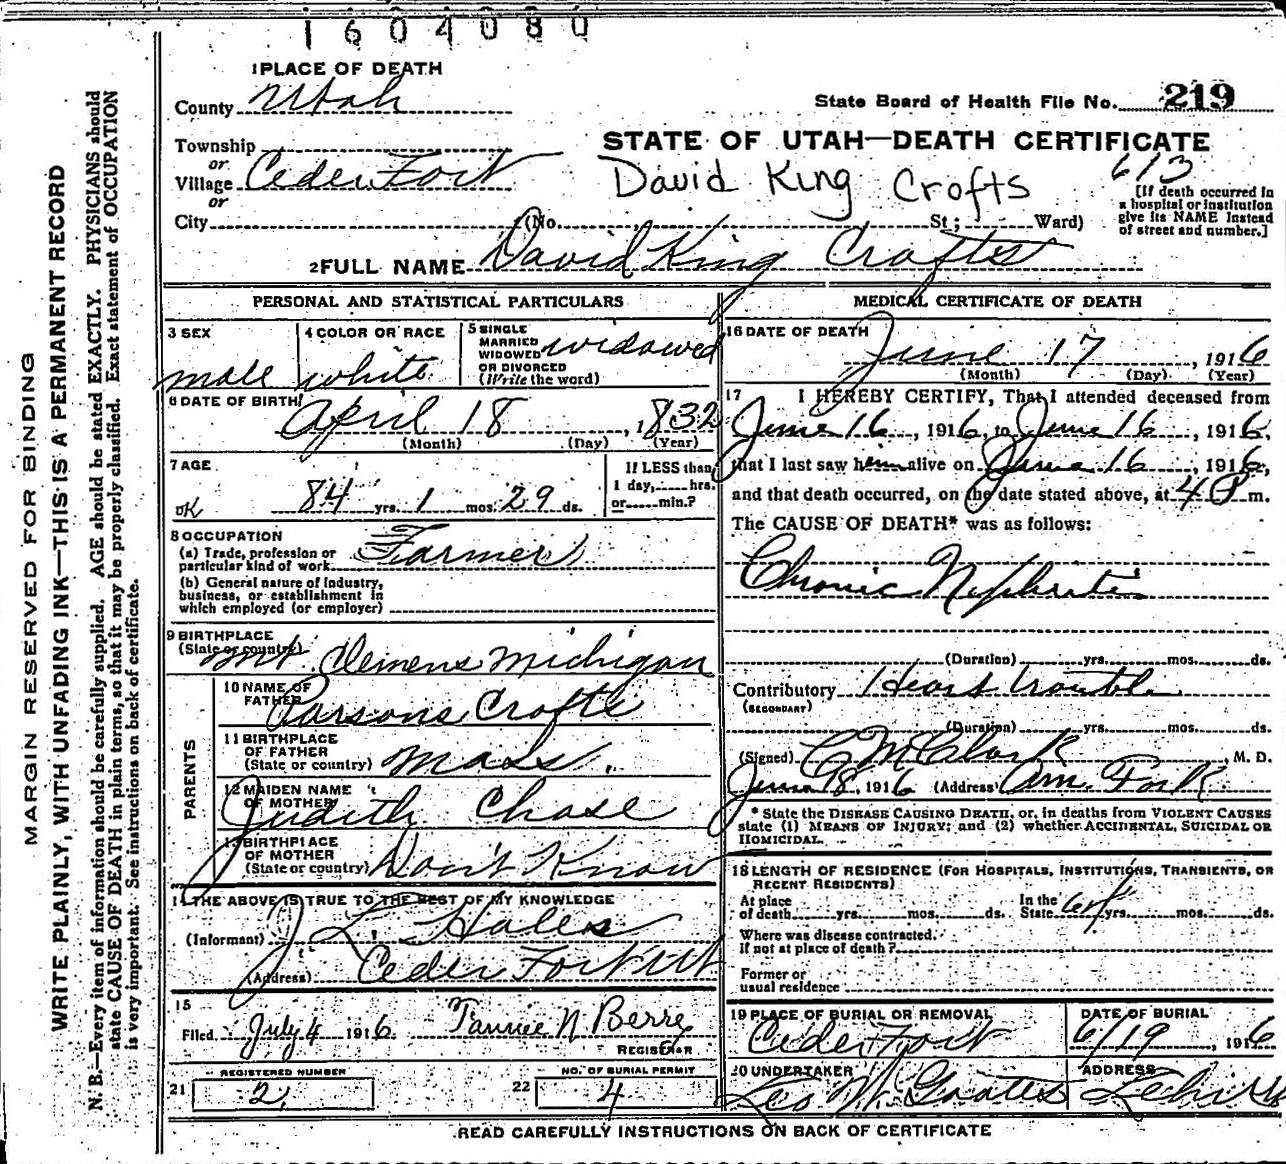 1604080
1 PLACE OF DEATH
County Utah
State Board of Health File No. 219
Township
or
Village Ceder Fort
or
City (No. St; Ward)
STATE OF UTAH—DEATH CERTIFICATE
613
David King Crofts
[If death occurred in
a hospital or institution
give its NAME instead
of street and number.]
2 FULL NAME David King Crofts
PERSONAL AND STATISTICAL PARTICULARS
3 SEX
male
4 COLOR OR RACE
white
5 SINGLE
MARRIED
WIDOWED
OR DIVORCED
(Write the word)
widowed
6 DATE OF BIRTH
April 18, 1832
(Month) (Day) (Year)
7 AGE
OK 84 yrs. 1 mos. 29 ds.
If LESS than
1 day, hrs.
or min.?
8 OCCUPATION
(a) Trade, profession or
particular kind of work Farmer
(b) General nature of Industry,
business, or establishment in
which employed (or employer)
9 BIRTHPLACE
(State or country)
Mt. Clemens Michigan
PARENTS
10 NAME OF
FATHER
Parsons Crofts
11 BIRTHPLACE
OF FATHER
(State or country) Mass.
12 MAIDEN NAME
OF MOTHER
Judith Chase
13 BIRTHPLACE
OF MOTHER
(State or country) Don't Know
14 THE ABOVE IS TRUE TO THE BEST OF MY KNOWLEDGE
(Informant) J L Hales
(Address) Ceder Fort Ut
15
Filed July 4 1916 Fannie N. Berry
REGISTRAR
21 REGISTERED NUMBER
2
22 NO. OF BURIAL PERMIT
4
MEDICAL CERTIFICATE OF DEATH
16 DATE OF DEATH
June 17, 1916
(Month) (Day) (Year)
17 I HEREBY CERTIFY, That I attended deceased from
June 16, 1916, to June 16, 1916,
that I last saw him alive on June 16, 1916,
and that death occurred, on the date stated above, at 4 P m.
The CAUSE OF DEATH* was as follows:
Chronic Nephritis
(Duration) yrs. mos. ds.
Contributory Heart trouble
(SECONDARY)
(Duration) yrs. mos. ds.
(Signed) C M Clark, M. D.
June 18, 1916 (Address) Am. Fork
* State the DISEASE CAUSING DEATH, or, in deaths from VIOLENT CAUSES
state (1) MEANS OF INJURY; and (2) whether ACCIDENTAL, SUICIDAL OR
HOMICIDAL.
18 LENGTH OF RESIDENCE (FOR HOSPITALS, INSTITUTIONS, TRANSIENTS, OR
RECENT RESIDENTS)
At place
of death yrs. mos. ds.
In the
State 64 yrs. mos. ds.
Where was disease contracted.
If not at place of death?
Former or
usual residence
19 PLACE OF BURIAL OR REMOVAL
Ceder Fort
DATE OF BURIAL
6/19, 1916
20 UNDERTAKER
Leo W. Goates
ADDRESS
Lehi
READ CAREFULLY INSTRUCTIONS ON BACK OF CERTIFICATE
MARGIN RESERVED FOR BINDING
WRITE PLAINLY, WITH UNFADING INK—THIS IS A PERMANENT RECORD
N. B.—Every item of information should be carefully supplied. AGE should be stated EXACTLY. PHYSICIANS should
state CAUSE OF DEATH in plain terms, so that it may be properly classified. Exact statement of OCCUPATION
is very important. See instructions on back of certificate.